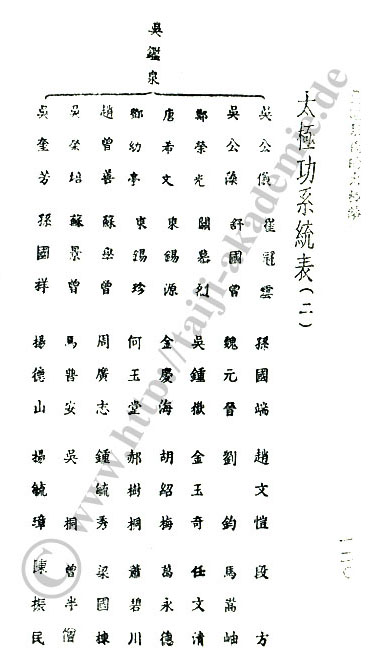 太極功系統表(二)
吳鑑泉
吳公儀 崔冠雲 孫國端 趙文愷 段方
吳公藻 舒國曾 魏元晉 劉鈞 馬嵩岫
鄭榮光 吳鍾嶽 金玉奇 任文清
唐希文 東錫源 金慶海 胡紹梅 葛永德
鄧幼亭 東錫珍 何玉堂 郝樹桐 蕭碧川
趙曾善 蘇學曾 周廣志 鍾毓秀 梁國棟
吳榮培 蘇景曾 馬普安 吳桐 曾半僧
吳奎芳 孫國祥 揚德山 揚毓璋 陳振民
© www.http://taiji-akademie.de